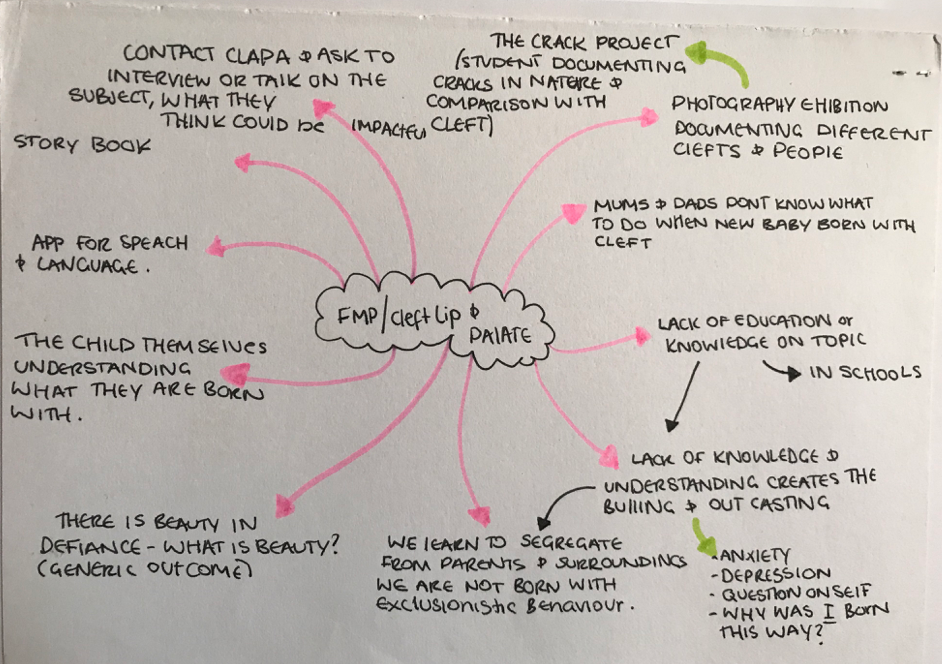 CONTACT CLAPA & ASK TO
INTERVIEW OR TALK ON THE
SUBJECT, WHAT THEY
THINK COULD be IMPACTFUL
THE CRACK PROJECT
(STUDENT DOCUMENTING
CRACKS IN NATURE &
COMPARISON WITH
CLEFT)
PHOTOGRAPHY EHIBITION
DOCUMENTING DIFFERENT
CLEFTS & PEOPLE
STORY BOOK
MUMS & DADS DONT KNOW WHAT
TO DO WHEN NEW BABY BORN WITH
CLEFT
APP FOR SPEACH
& LANGUAGE.
FMP/cleft Lip &
PALATE
LACK OF EDUCATION or
KNOWLEDGE ON TOPIC
IN SCHOOLS
THE CHILD THEMSELVES
UNDERSTANDING
WHAT THEY ARE BORN
WITH.
LACK OF KNOWLEDGE &
UNDERSTANDING CREATES THE
BULLING & OUT CASTING
-ANXIETY
-DEPRESSION
- QUESTION ON SELF
- WHY WAS I BORN
THIS WAY?
WE LEARN TO SEGREGATE
FROM PARENTS & SURROUNDINGS
WE ARE NOT BORN WITH
Exclusionistic Behaviour.
THERE IS BEAUTY IN
DEFIANCE - WHAT IS BEAUTY?
(GENERIC OUTCOME)